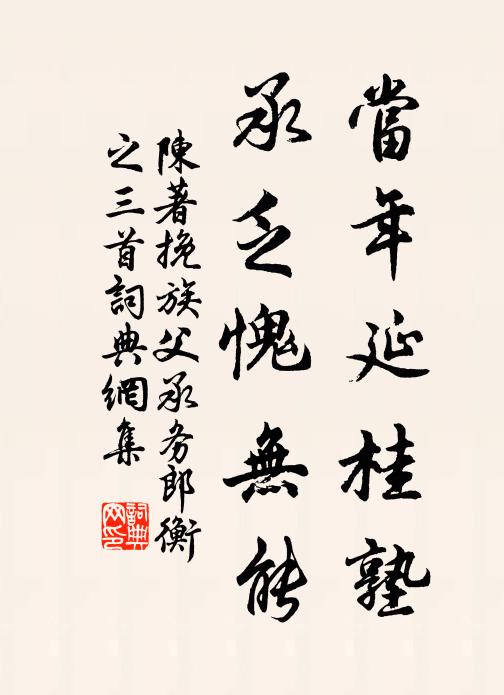 當年延桂塾
承乏愧無能
陳著挽族父承务郎衡
之三首詞典網集
詞典
网印